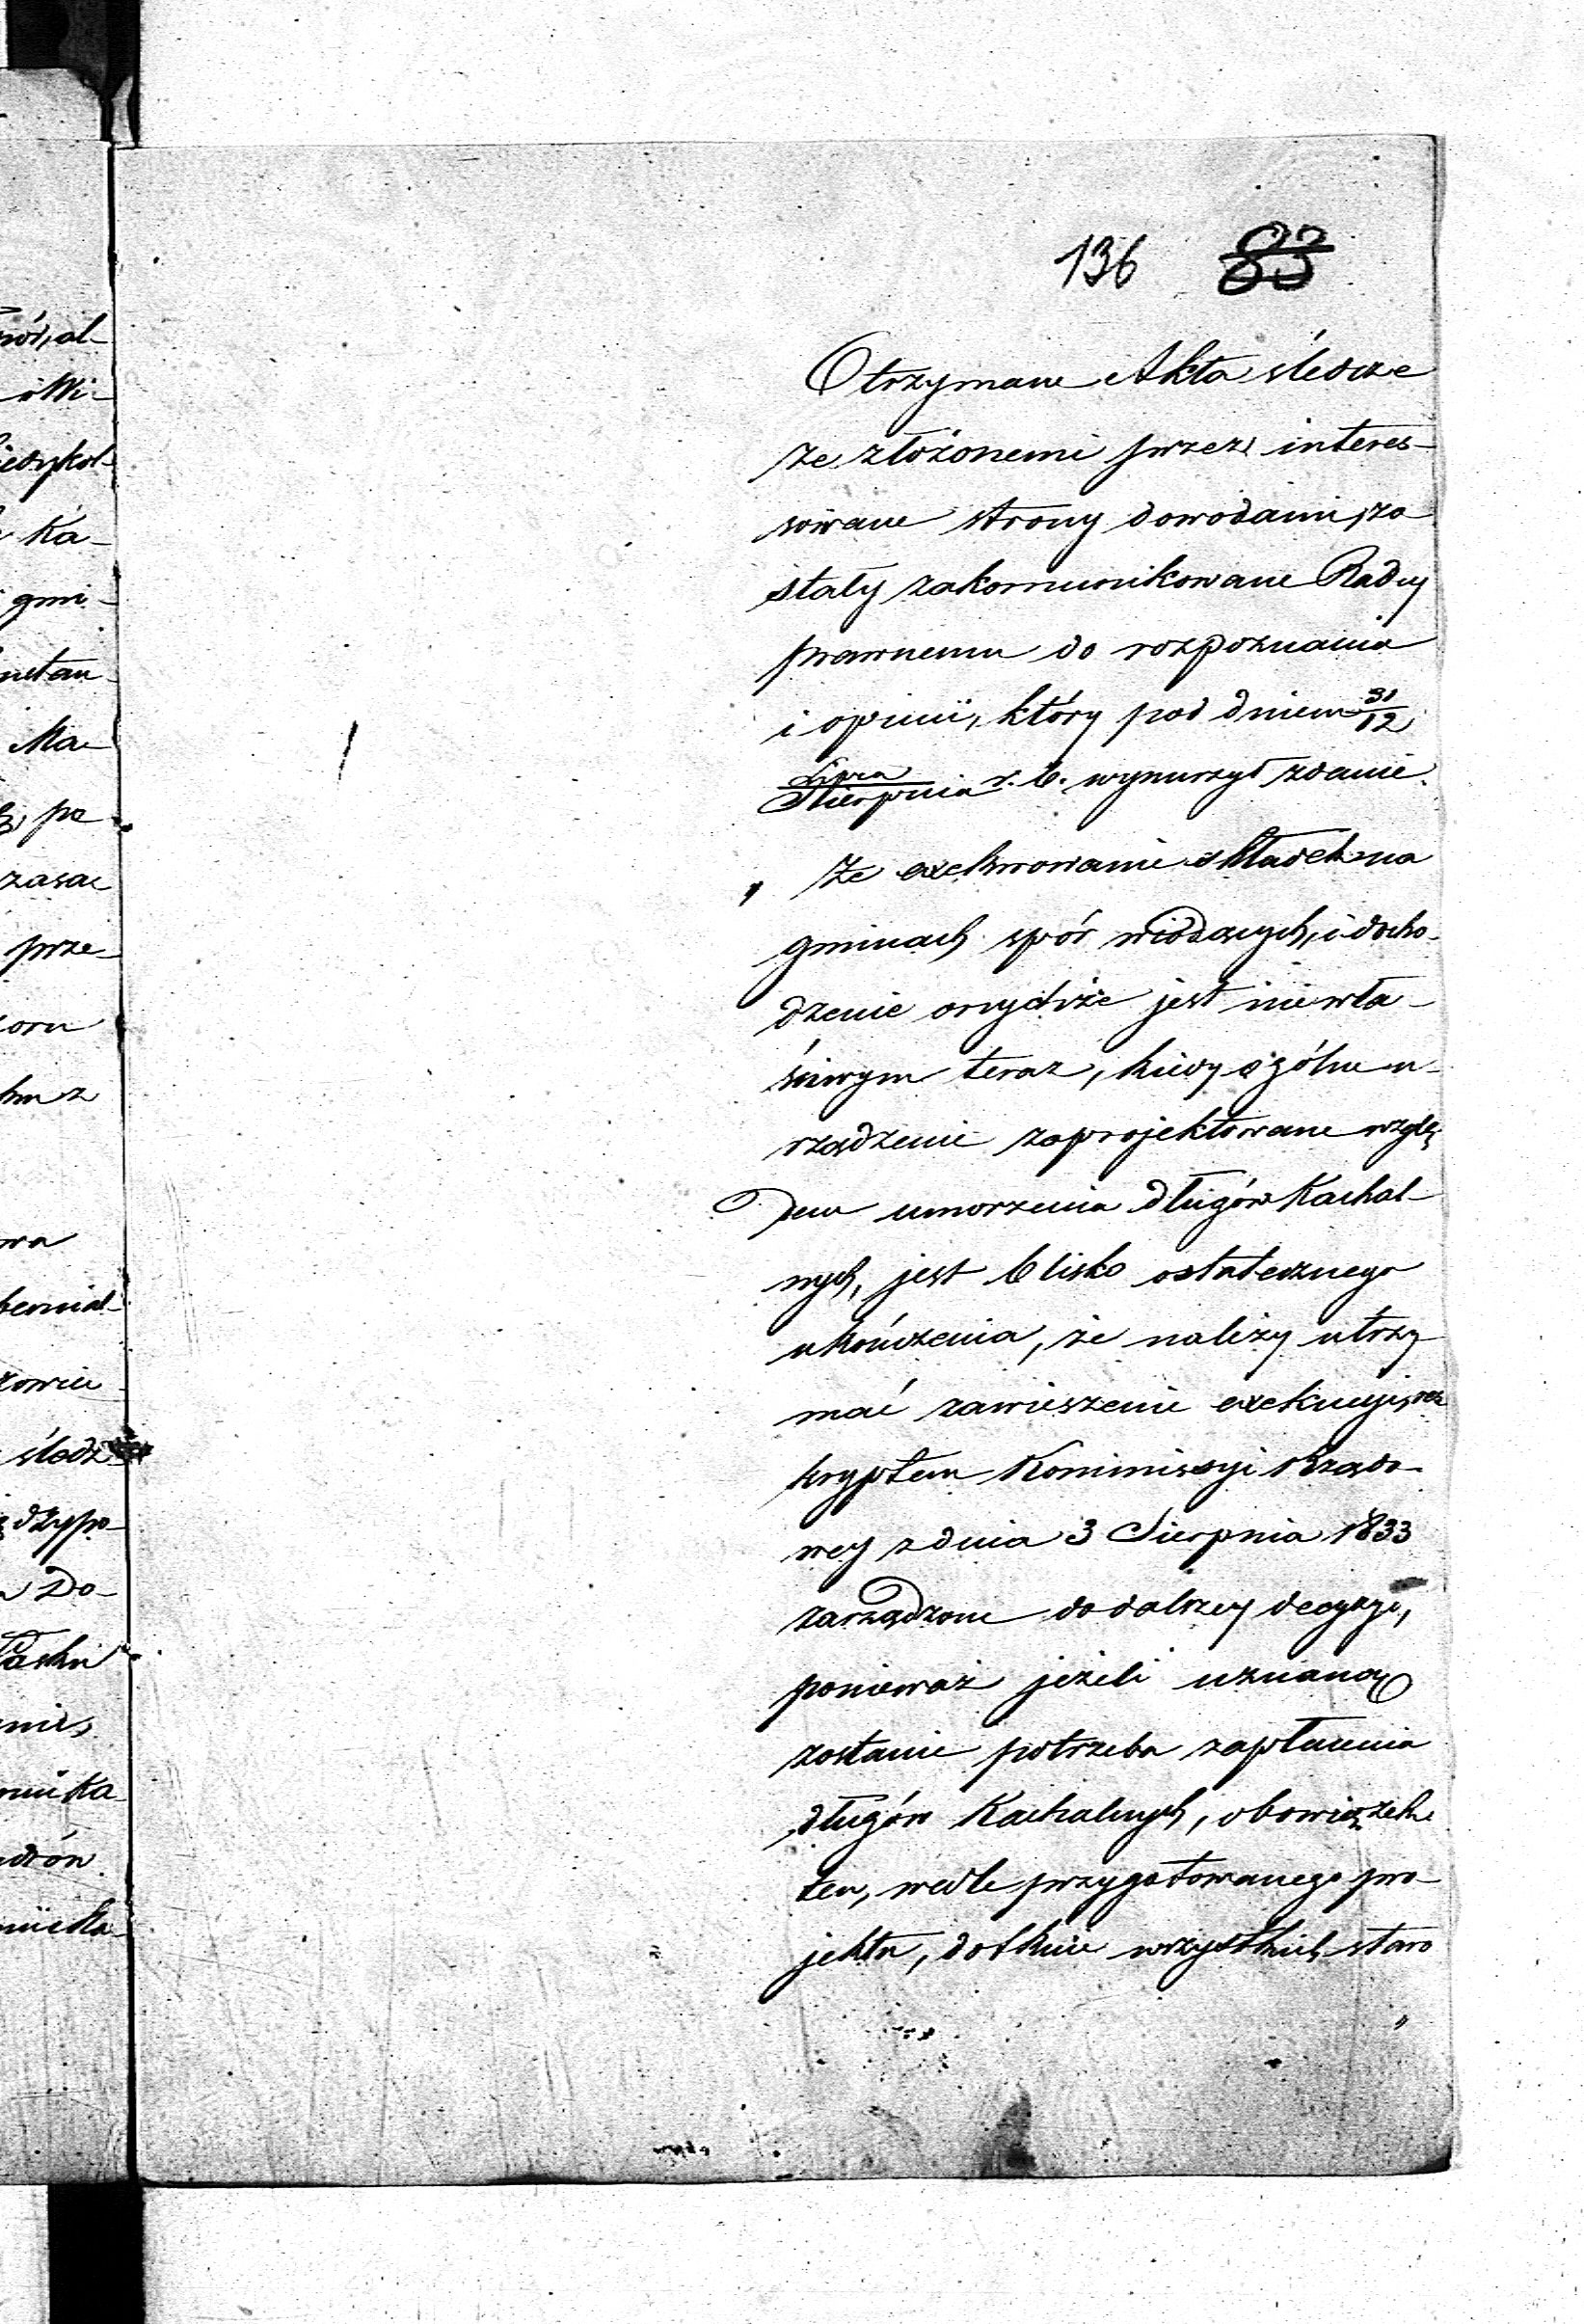 136 83
Otrzymane Akta śledcze
ze złożonemi przez interes-
sowane strony dowodami, zo
stały zakomunikowane Radcy
prawnemu do rozpoznania
i opinii, który pod dniem 31/12
Lipca/Sierpnia r. b. wynurzył zdanie.
" Że exekwowanie składek na
gminach spór wiodących, i docho-
dzenie onychże jest niewła-
ściwym teraz, kiedy ogólne u-
rządzenie zaprojektowane wzglę
dem umorzenia długów Kachal-
nych, jest blisko ostatecznego
ukończenia, że należy utrzy
mać zawieszenie exekucyi, res
kryptem Kommissyi Rządo-
wey z dnia 3 Sierpnia 1833
zarządzone do dalszey decyzyi,
ponieważ jeżeli uznaną
zostanie potrzeba zapłacenia
długów Kachalnych, obowiązek
ten, wedle przygotowanego pro-
jektu, dotknie wszystkich staro
"
al-
Ka-
gmi-
Ma-
po
prze-
śledz
Do-